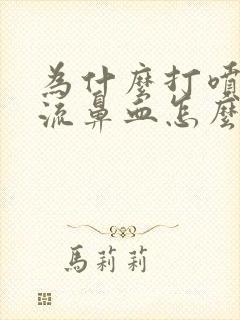 為什麼打噴
流鼻血怎麼
馬莉莉